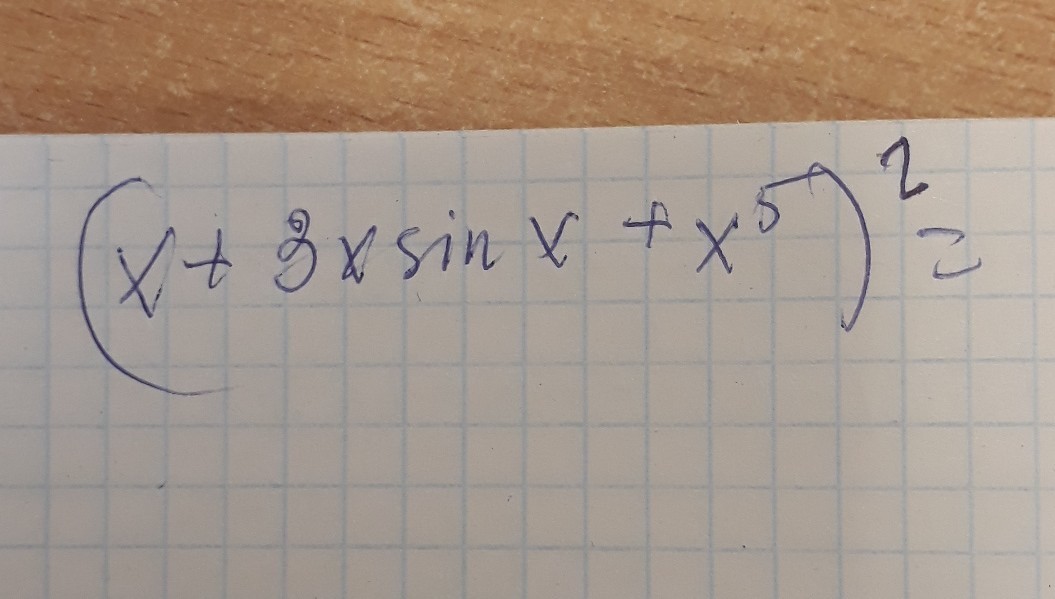 (x + 3x sin x + x⁵)² =